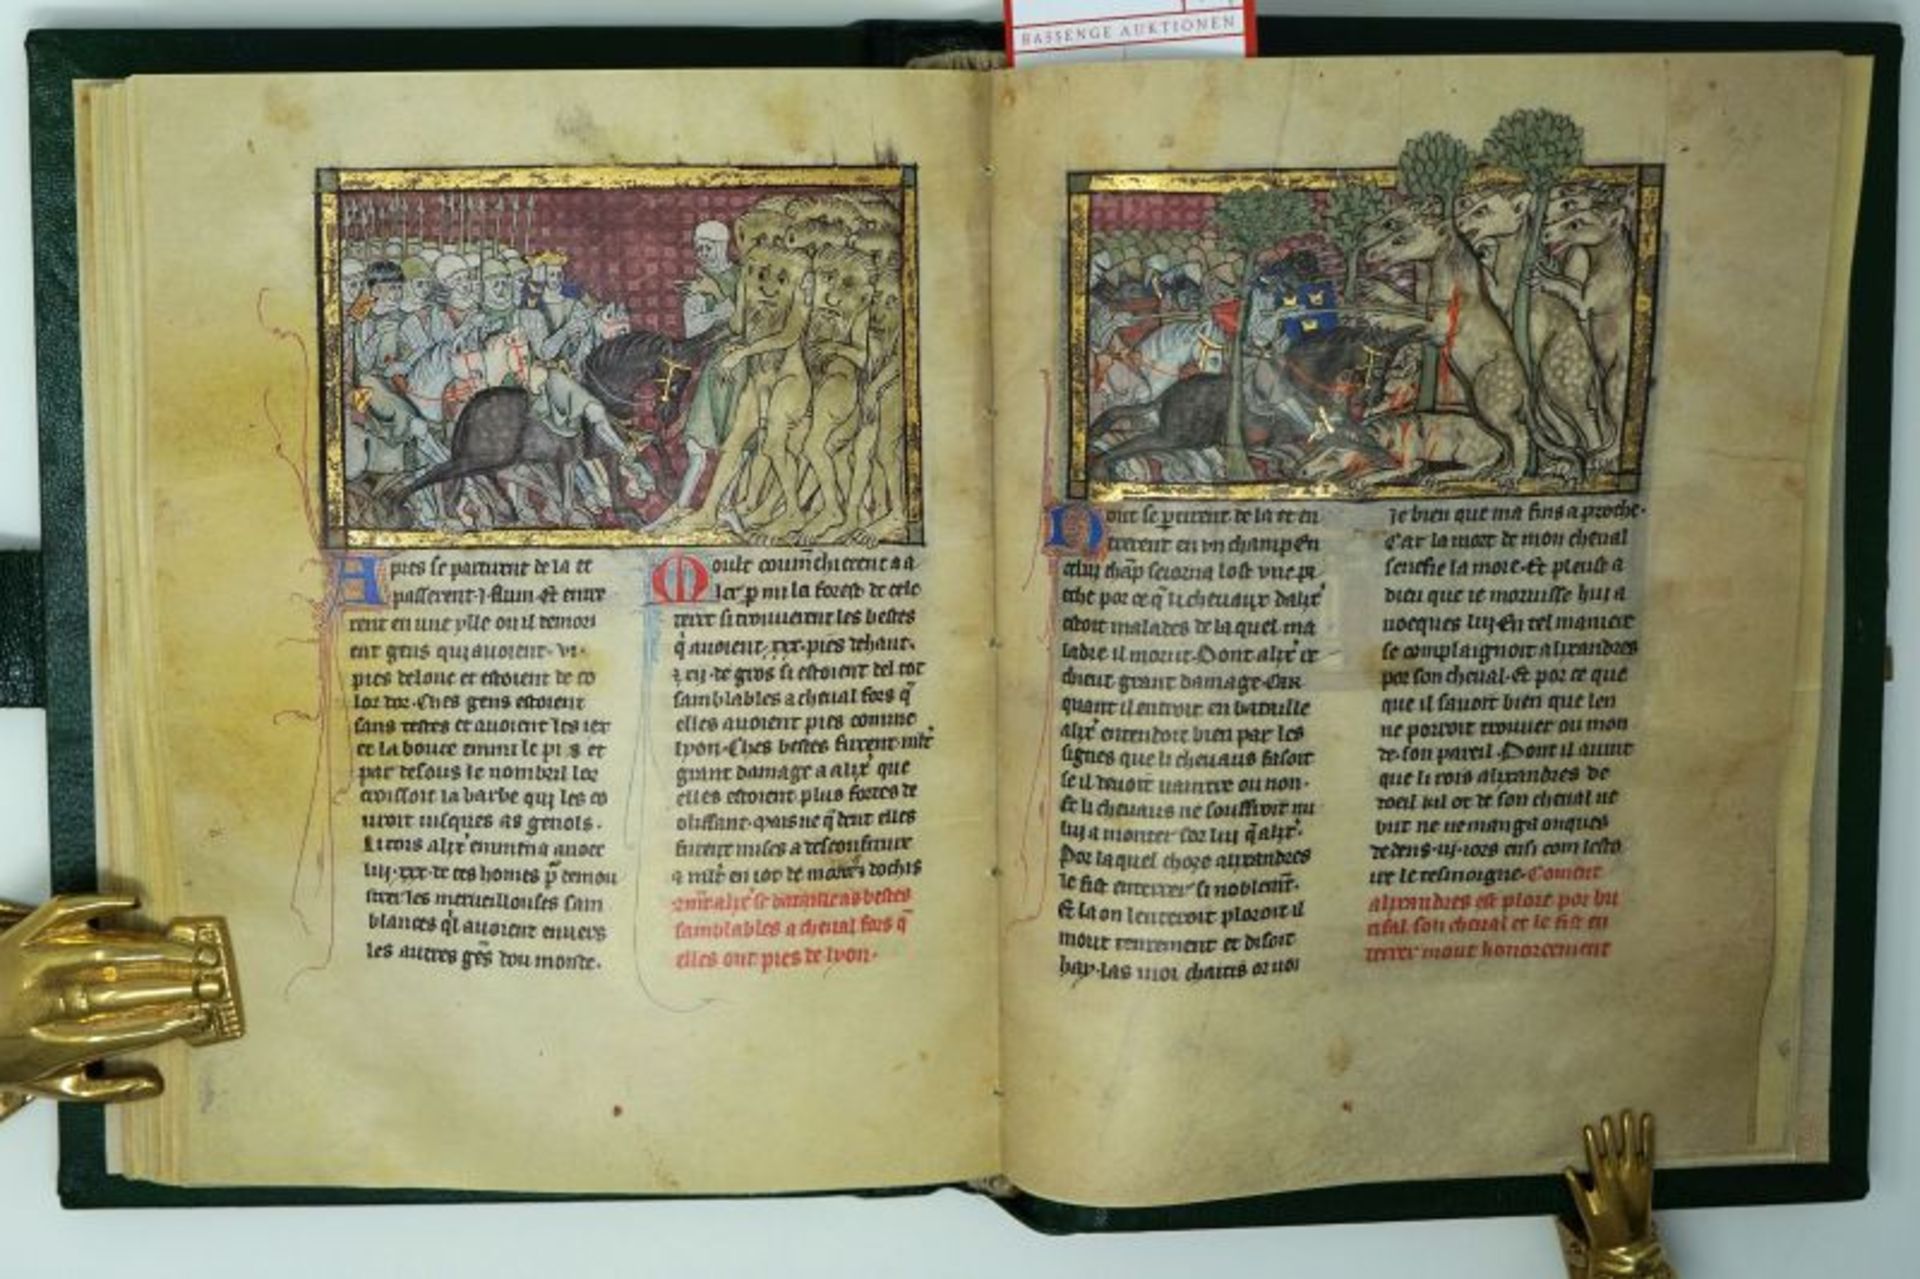 BASSENGE AUKTIONEN
Apres se partirent de la et
passerent .i. flum et entre
rent en une ylle ou il demor
ent gens qui avoient .vi.
pies de lonc et estoient de co
lor dor. Ches gens estoient
sans testes et avoient les iex
et la bouce emmi le pis et
par desous le nombril lor
croissoit la barbe qui les co
uroit iusques as genols.
Li rois alix' emmena avoec
lui .xxx. de ces homes p demou
strer les merveillouses sam
blances ql avoient envers
les autres gēs dou monde.
Moult coum̄chierent a a
ler p mi la forest de cele
terre si trouverent les bestes
q avoient .xxx. pies de haut.
.xij. de gros si estoient del tot
samblables a cheval fors q̄
elles avoient pies comme
lyon. Ches bestes furent mlt'
grant damage a alix' que
elles estoient plus fortes de
olifant. mais ne q dent elles
furent mises a desconfiture
samblables a cheval fors q̄
elles ont pies de lyon.
Dont se partirent de la et en
trerent en un champ En
celui chāp seiorna lost une pi
eche por ce q li chevaux dalix'
estoit malades de la quel ma
ladie il morut. Dont alix' et
chieut grant damage. Car
quant il entroit en bataille
alix' entendoit bien par les
signes que li chevaus faisoit
se il devoit vaintre ou non.
Et li chevaus ne souffroit nu
lui a monter sor lui q alix'.
Por laquel chose alixandres
le fist enterrer si noblem̄t.
Et la on lenterroit ploroit il
mout tenrement et disoit
hay. las moi chaitis or uoi
Je bien que ma fins aproche.
Car la mort de mon cheval
senefie la moie. Et pleust a
dieu que ie morusse hui a
voecques lui. En tel maniere
se complaignoit alixandres
por son cheval. Et por ce que
que il savoit bien que len
ne porroit trouver ou mon
de son pareil. Dont il avint
que li rois alixandres de
doeil kil ot de son cheval ne
but ne ne manga onques
dedens .iij. iors ensi com lesto
ire le tesmoigne. Coment
alixandres est plore por bu
cifal son cheval et le fist en
terrer mout honoreement